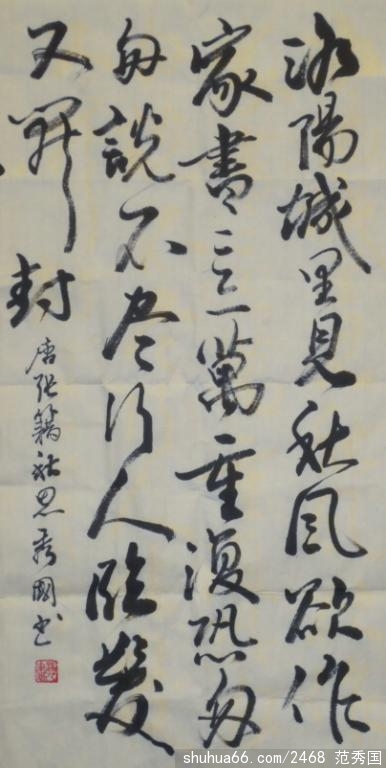 洛陽城里見秋风欲作
家書意萬重復恐匆
匆説不尽行人臨發
又開封
唐張籍秋思秀國书
shuhua66.com/2468 范秀国